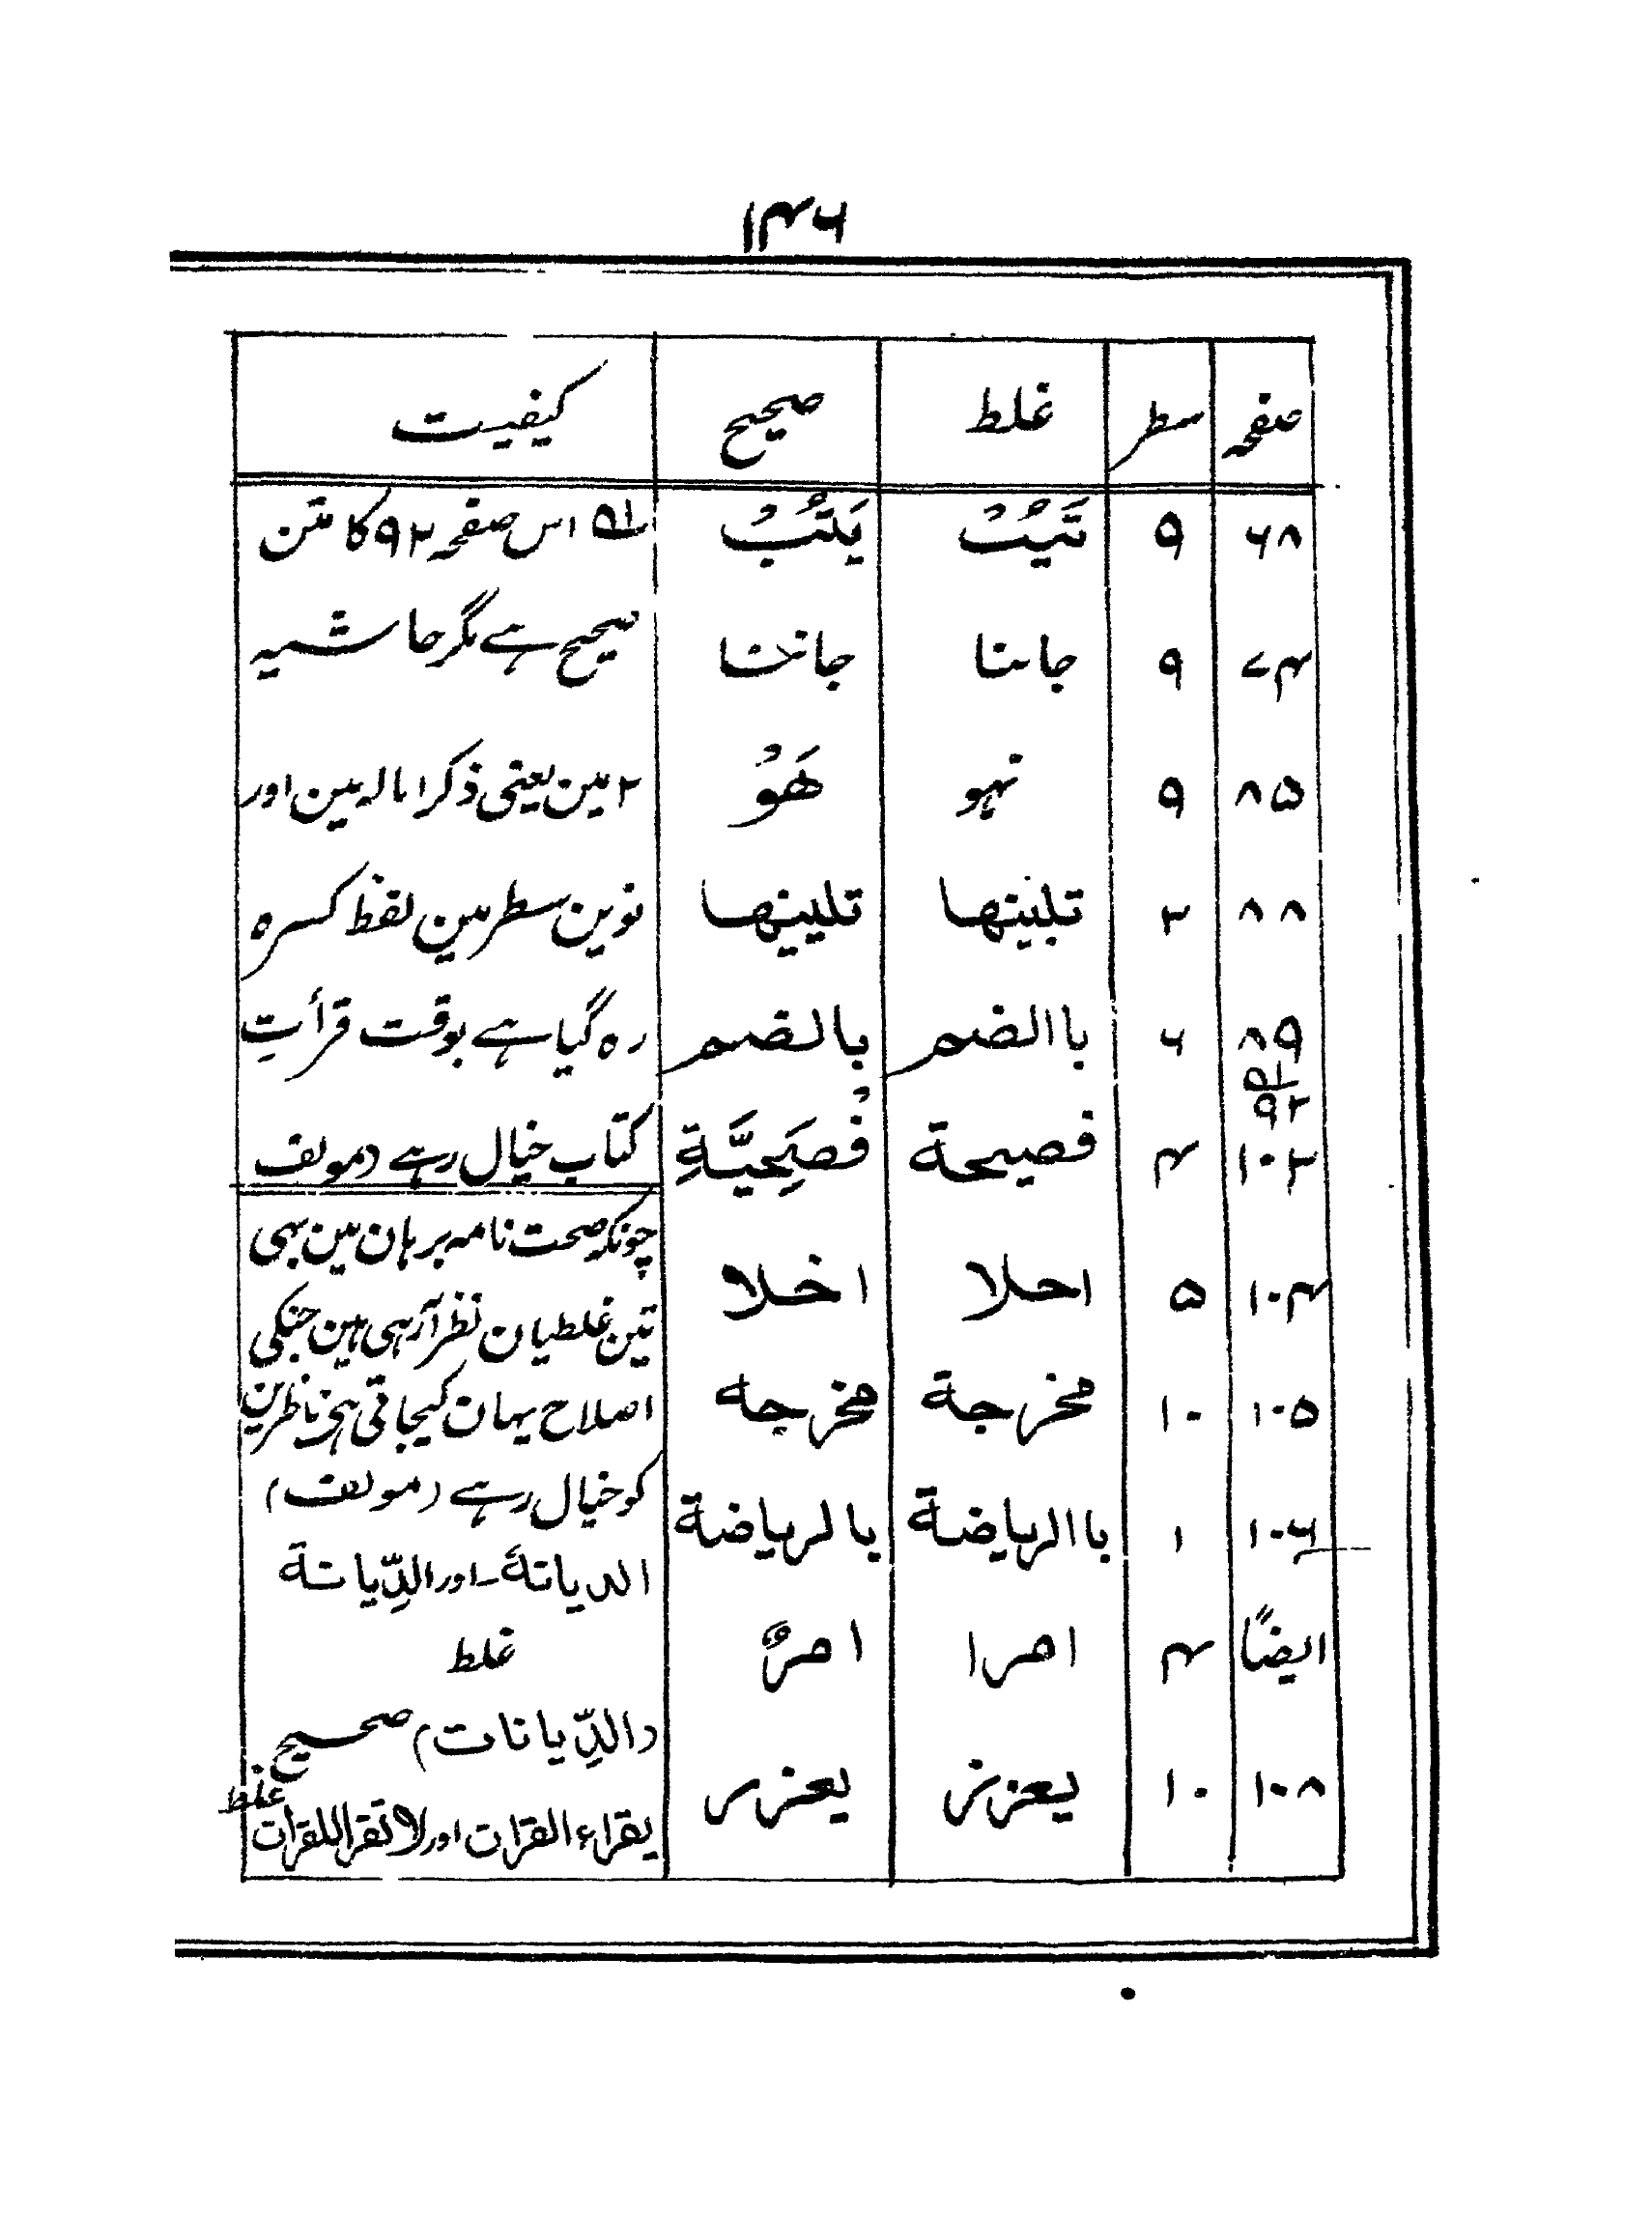 ۱۴۶
صفحہ سطر غلط صحیح کیفیت
۶۸ ۹ تَیُبُ یَتُبُ ۵۱ اس صفحہ ۹۲ کا متن
۷۴ ۹ جاننا جاننا صحیح ہے مگر حاشیہ
۸۵ ۹ نہو هَوُ ۲ مین یعنی ذکر امالہ مین اور
۸۸ ۳ تلبینها تلیینها نوین سطر مین لفظ کسرہ
۸۹ ۶ باالضم بالضم رہ گیا ہے بوقت قرأتِ
۵۱
۹۲
۱۰۳ ۴ فصیحة فُصَحِیَّةِ کتاب خیال رہے (مولف
۱۰۴ ۵ احلا اخلا چونکہ صحت نامہ برہان مین بہی
تین غلطیان نظر آرہی ہین جنکی
۱۰۵ ۱۰ مخرجة مخرجه اصلاح یہان کیجاتی ہی ناظرین
۱۰۶ ۱ باالریاضة بالریاضة کو خیال رہے (مولف)
الدیانة - اور الدِّیانة
ایضًا ۴ امرا امرٌ غلط
(الدِّیانات) صحیح
۱۰۸ ۱۰ یعزیز یعزر یقراء القرات اور لا تقرا للقرأت غلط